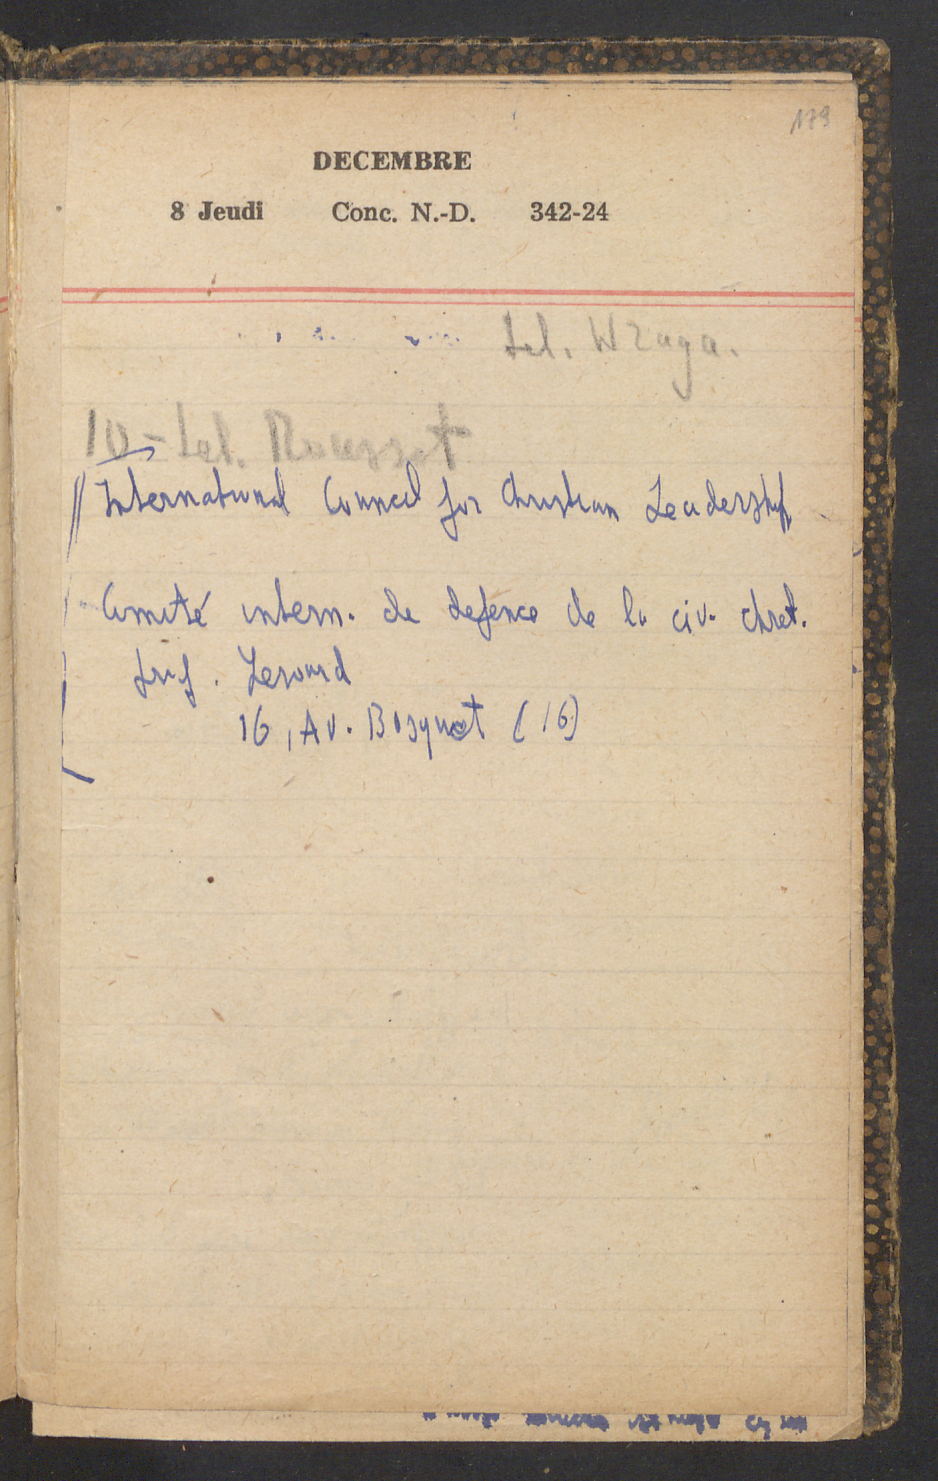 179
DECEMBRE
8 Jeudi Conc. N.-D. 342-24
tel. Wraga.
10 - tel. Rousset
International Council for Christian Leadership
Comité intern. de defence de la civ. chret.
prof. Lesourd
16, Av. Bosquet (16)